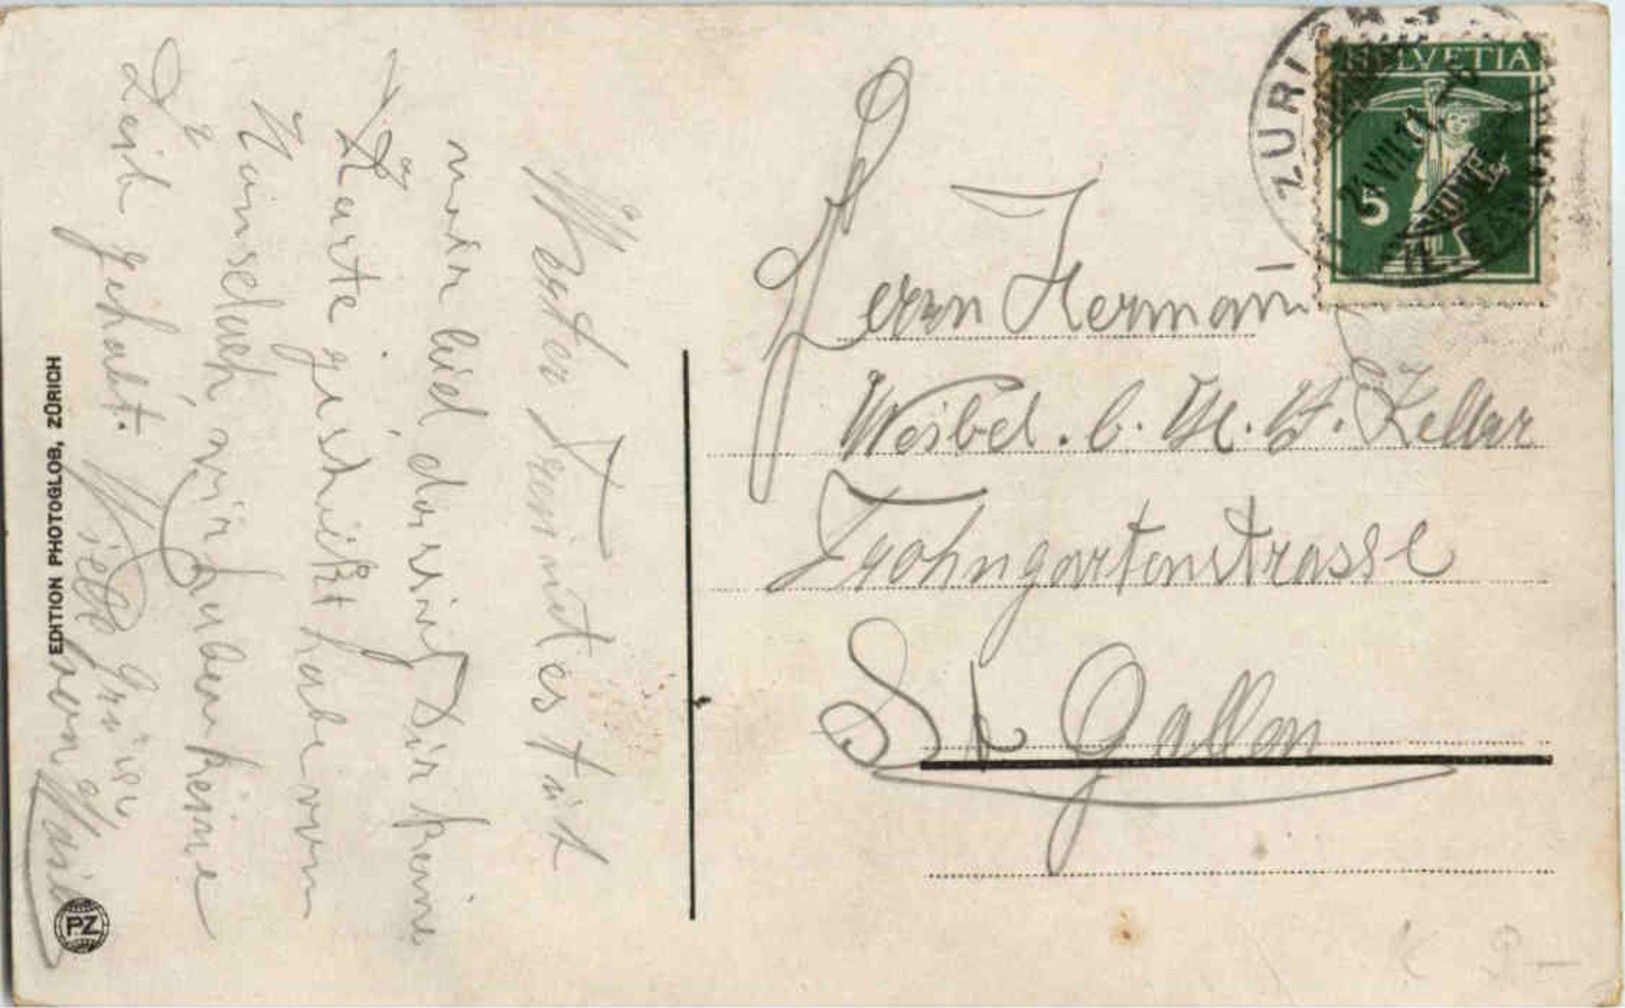 Werter Freund es tut
mir leid dass ich Dir keine
Karte geschickt habe vom
wir haben keine
Zeit gehabt. Viele Grüsse
von
EDITION PHOTOGLOB, ZÜRICH
PZ
Herrn Hermann
Weibel. b. H. H. Keller
St Gallen
HELVETIA
5
ZÜRI
VII.11.